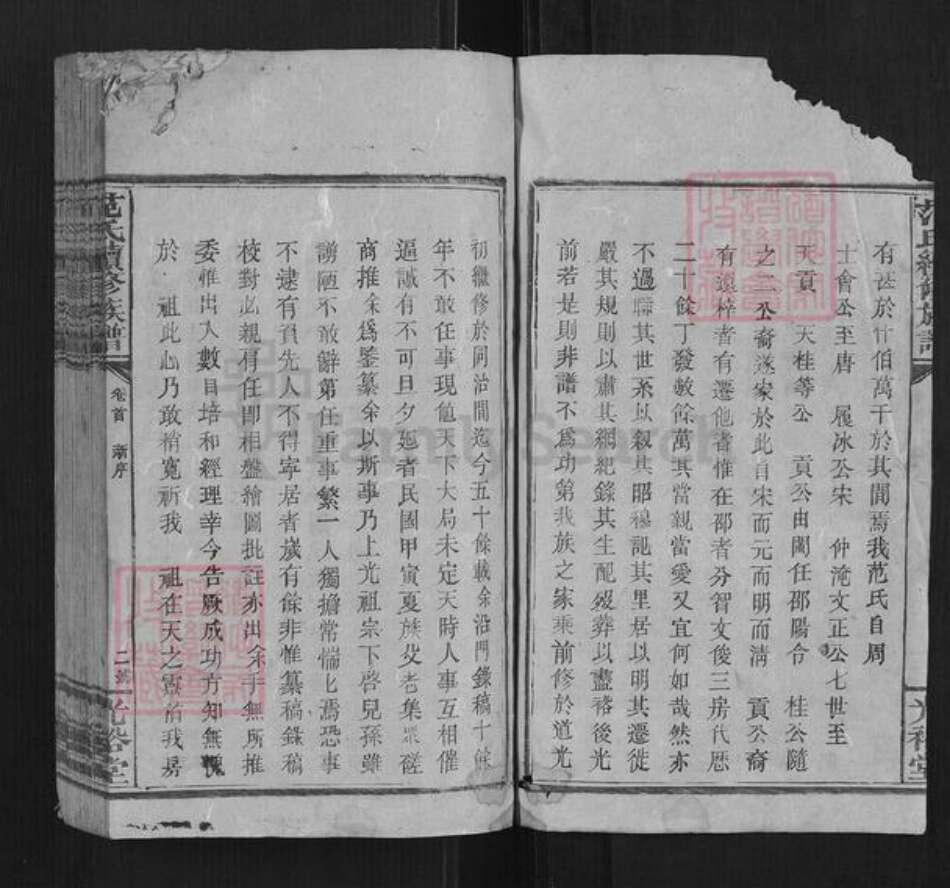 有甚於什伯萬千於其間焉我范氏自周
士會公至唐 履冰公宋 仲淹文正公七世至
天貢 天桂等公 貢公由閩任邵陽令 桂公隨
之二公裔遂家於此自宋而元而明而清 貢公裔
有還梓者有遷他者惟在邵者分智文俊三房代歷
二十餘丁發數餘萬其當親當愛又宜何如哉然亦
不過聯其世系以叙其昭穆記其里居以明其遷徙
嚴其規則以肅其綱紀錄其生配歿葬以盡裕後光
前若是則非譜不為功第我族之家乘前修於道光
初繼修於同治間迄今五十餘載余沿門錄稿十餘
年不敢任事現值天下大局未定天時人事互相催
逼誠有不可旦夕延者民國甲寅夏族父老集眾磋
商推余為鑒纂余以斯事乃上光祖宗下啓兒孫雖
謭陋不敢辭第任重事繁一人獨擔常惴七焉恐事
不逮有負先人不得寧居者歲有餘非惟纂稿錄稿
校對必親有任即相盤繪圖批註亦出余手無所推
委雅出入數目培和經理幸今告厥成功方知無愧
於 祖此心乃敢稍寬祈我 祖在天之靈佑我房
范氏續修族譜
卷首 新序
二 光裕堂
FamilySearch